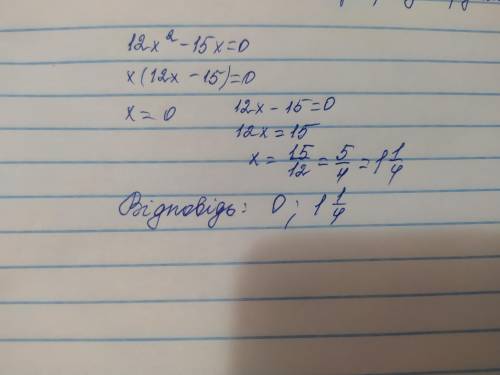 12x² - 15x = 0
x(12x - 15) = 0
x = 0 12x - 15 = 0
12x = 15
x = 15/12 = 5/4 = 1 1/4
Відповідь: 0; 1 1/4